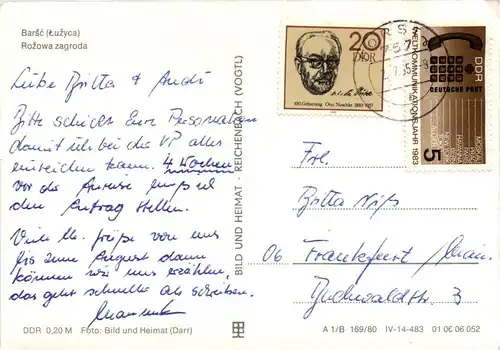 Baršć (Łužyca)
Rožowa zagroda
Liebe Britta & André
Bitte schickt Eure Personalien
damit ich bei der VP alles
einreichen kann. 4 Wochen
vor der Anreise muß ich
den Antrag stellen.
Viele Grüße von uns
bis zum August dann
können wir uns erzählen,
das geht schneller als schreiben.
DDR 0,20 M Foto: Bild und Heimat (Darr)
BILD UND HEIMAT - REICHENBACH (VOGTL)
20
DDR
100. Geburtstag Otto Nuschke 1883-1957
DDR
DEUTSCHE POST
WELTKOMMUNIKATIONSJAHR 1983
5
757
Frl.
Britta
06 Frankfurt/Main
Buchwaldstr. 3
A 1/B 169/80 IV-14-483 01 06 06 052